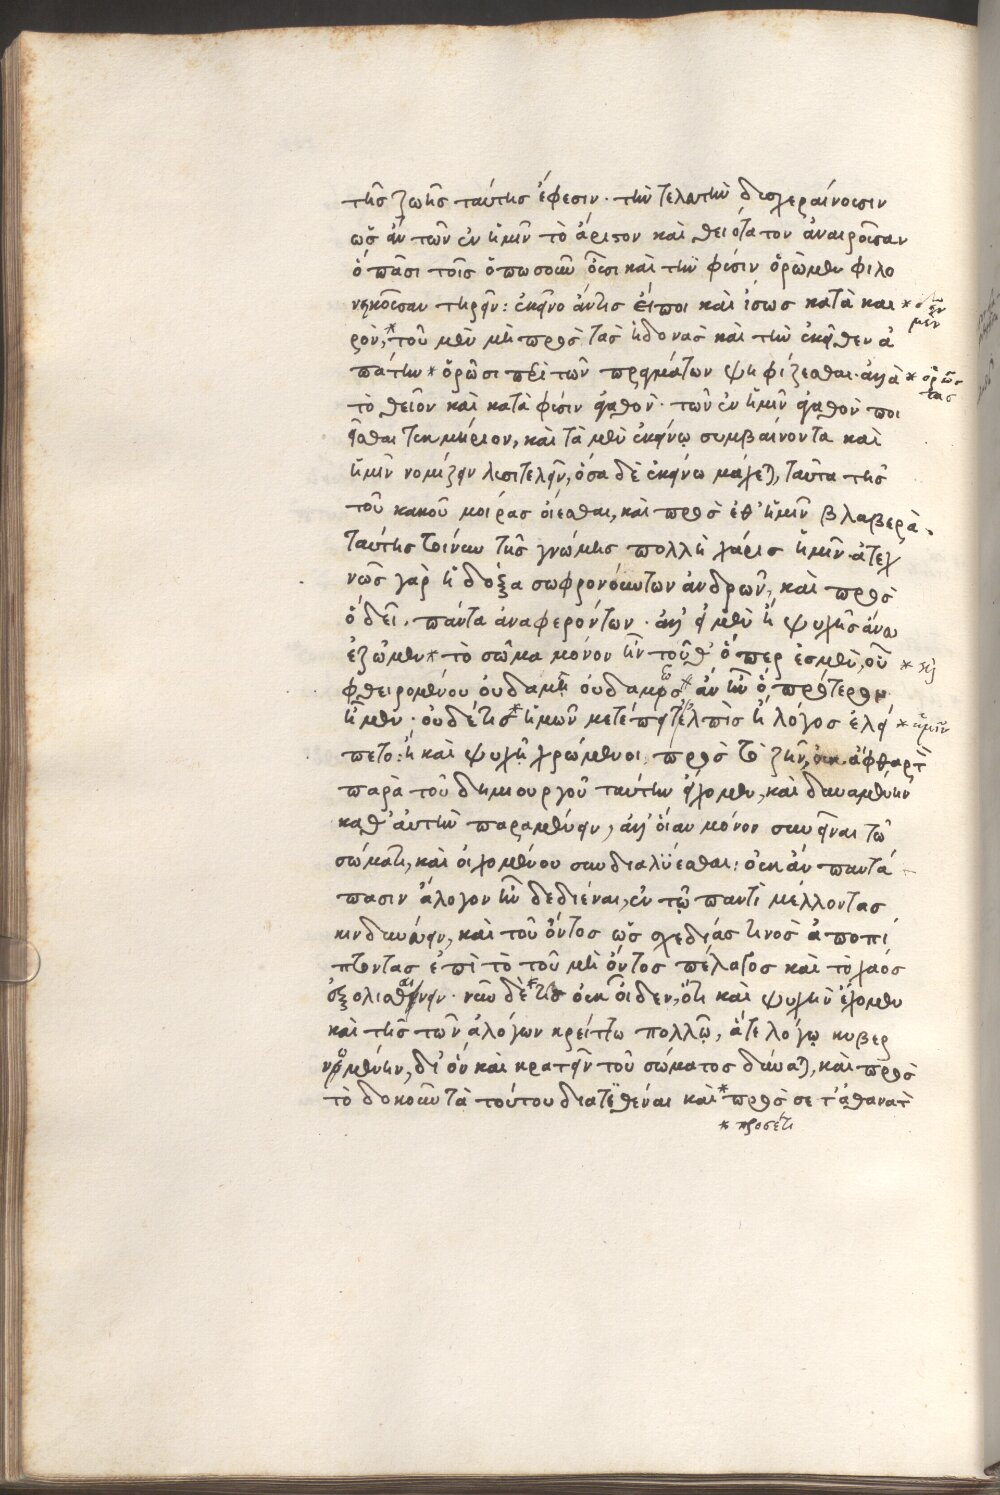 τῆς ζωῆς ταύτης ἔφεσιν. τὴν τελευτὴν δυσχεραίνουσιν
ὡς ἂν τῶν ἐν ἡμῖν τὸ ἄριστον καὶ θειότατον ἀναιροῦσαν
ὃ πᾶσι τοῖς ὁπωσοῦν οὖσι καὶ τὴν φύσιν ὁρῶμεν φιλο
νεικοῦσαν τηρεῖν: ἐκεῖνο ἄν τις εἴποι καὶ ἴσως κατὰ και
ρὸν,* τοῦ μὲν μὴ πρὸς τὰς ἡδονὰς καὶ τὴν ἐκεῖθεν ἀ
πάτην * ὁρῶσι περὶ τῶν πραγμάτων ψηφίζεσθαι. ἀλλὰ * ὁρῶν
τας
τὸ θεῖον καὶ κατὰ φύσιν ἀγαθὸν. τῶν ἐν ἡμῖν ἀγαθὸν ποι
εῖσθαι τεκμήριον, καὶ τὰ μὲν ἐκείνῳ συμβαίνοντα καὶ
ἡμῖν νομίζειν λυσιτελεῖν, ὅσα δὲ ἐκείνω μάχεται, ταῦτα τῆς
τοῦ κακοῦ μοίρας οἴεσθαι, καὶ πρὸς ἔθ' ἡμῖν βλαβερὰ.
ταύτης τοίνυν τῆς γνώμης πολλὴ χάρις ἡμῖν. ἀτεχ
νῶς γὰρ ἡ δόξα σωφρονούντων ἀνδρῶν, καὶ πρὸς
ὃ δεῖ. πάντα ἀναφερόντων. ἀλλ' εἰ μὲν ἢ ψυχῆς ἄνευ
ἐζῶμεν * τὸ σῶμα μόνον ἦν τοῦθ' ὅπερ ἐσμὲν, οὗ * καὶ
φθειρομένου οὐδαμῆ οὐδαμῶς ἂν ἦν ὃ πρότερον
ἦμεν. οὐδέ τις * ἡμῶν μετέπειτ' ἐλπὶς ἢ λόγος ἐλεί * ἡμῖν
πετο: ἢ καὶ ψυχῇ χρώμενοι, πρὸς τὸ ζῆν, οὐκ ἄφθαρτ
παρὰ τοῦ δημιουργοῦ ταύτην εἴχομεν, καὶ δυναμένην
καθ' αὑτὴν παραμένειν, ἀλλ' οἵαν μόνον συνεῖναι τῶ
σώματι, καὶ οἰχομένου συνδιαλύεσθαι: οὐκ ἂν παντά
πασιν ἄλογον ἦν δεδιέναι, ἐν τῷ παντὶ μέλλοντας
κινδυνεύειν, καὶ τοῦ ὄντος ὥς σχεδιάς τινος ἀποπί
πτοντας ἐπὶ τὸ τοῦ μὴ ὄντος πέλαγος καὶ τὸ χάος
ἐξολισθαίνειν. νῦν δὲ * τίς οὐκ οἶδεν, ὅτι καὶ ψυχὴν ἔχομεν
καὶ τῆς τῶν ἀλόγων κρείττω πολλῷ, ἅτε λόγῳ κυβερ
νωμένην, δι' ὃν καὶ κρατεῖν τοῦ σώματος δύναται, καὶ πρὸς
τὸ δοκοῦν τὰ τούτου διατιθέναι καὶ * πρὸς σε τ' ἀθανατ
* προσέτι